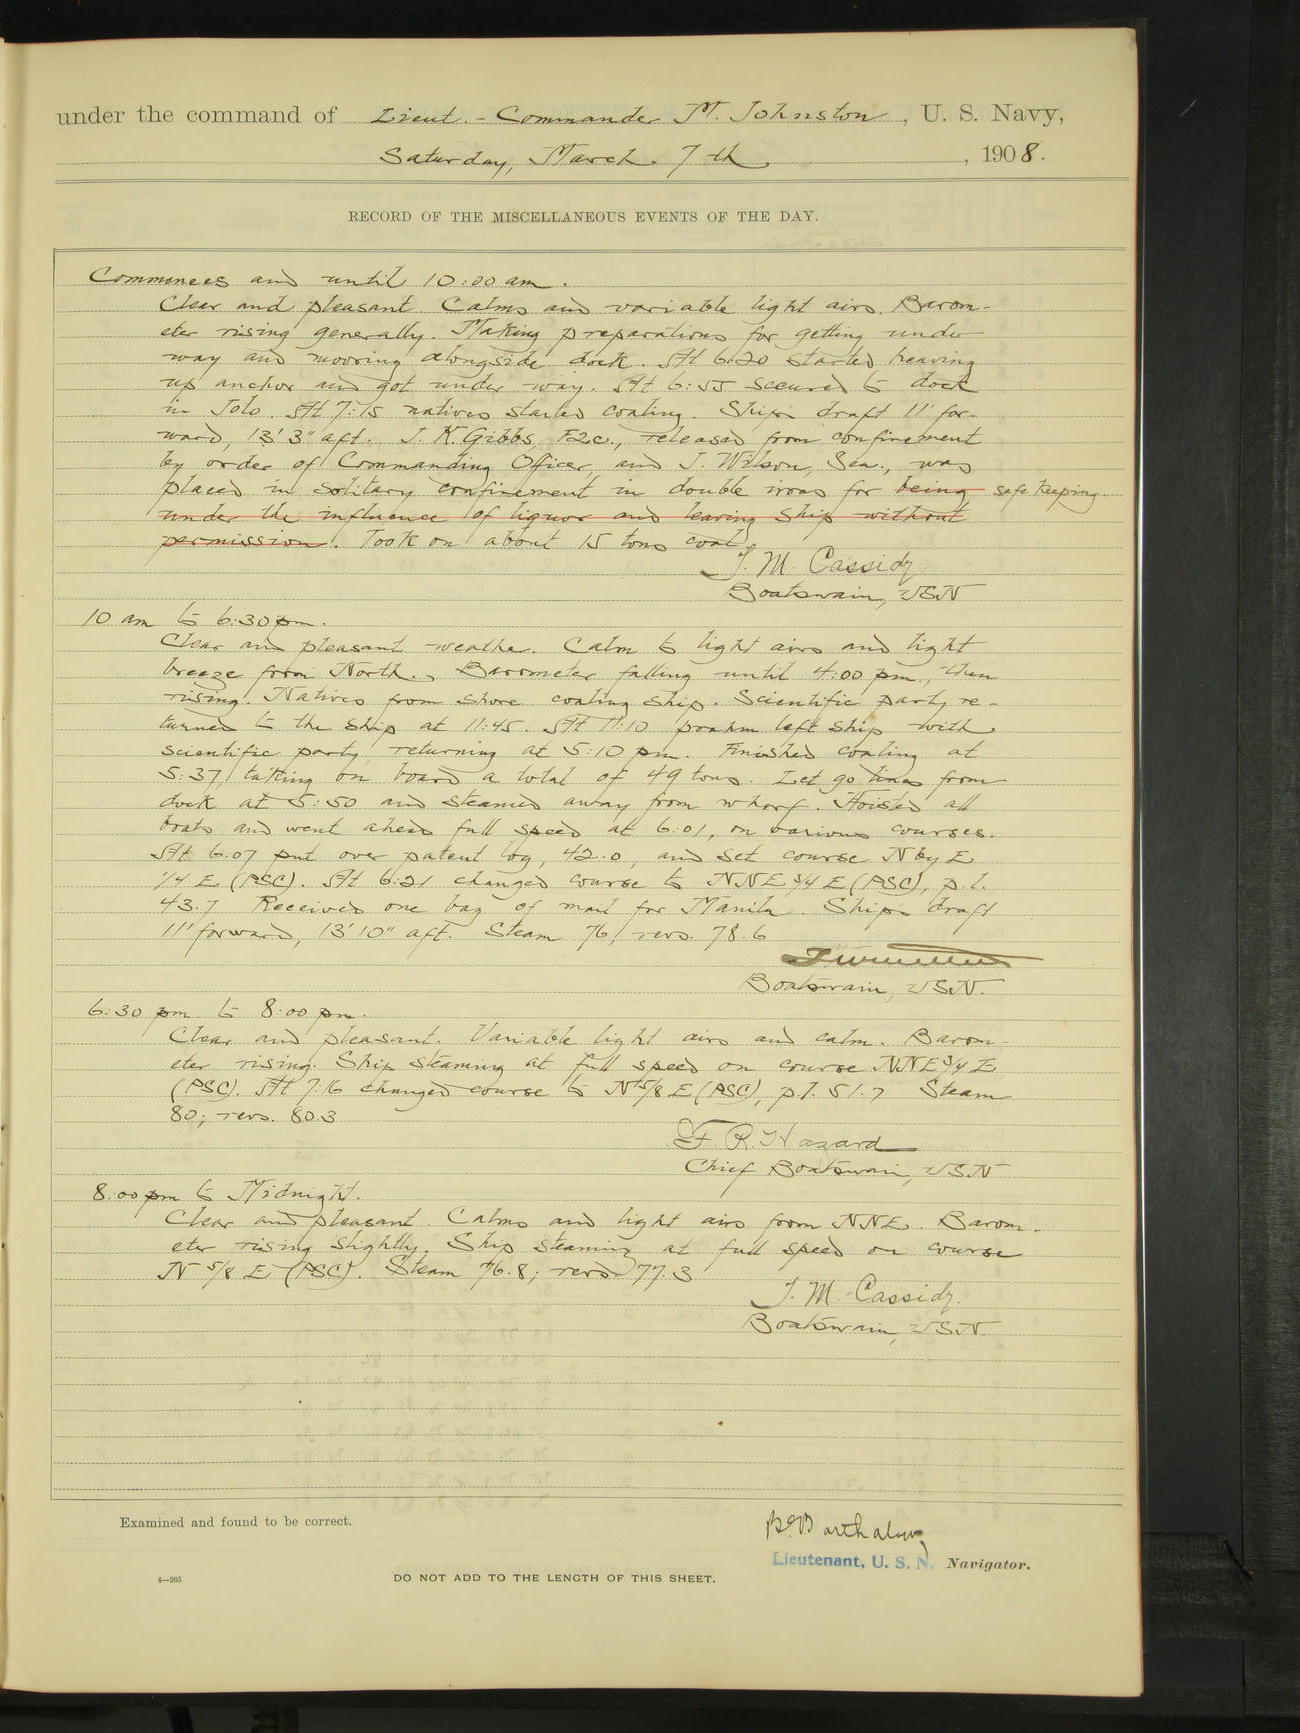 under the command of Lieut.-Commander M. Johnston, U. S. Navy,
Saturday, March 7th, 1908.
RECORD OF THE MISCELLANEOUS EVENTS OF THE DAY.
Commences and until 10:00 am.
Clear and pleasant. Calms and variable light airs. Barom-
eter rising generally. Making preparations for getting under
way and mooring alongside dock. At 6:20 started heaving
up anchor and got under way. At 6:55 secured to dock
in Jolo. At 7:15 natives started coaling. Ship's draft 11' for-
ward, 13' 3" aft. J. K. Gibbs, F2c., released from confinement
by order of Commanding Officer, and J. Wilson, Sea., was
placed in solitary confinement in double irons for being safe keeping.
under the influence of liquor and leaving ship without
permission. Took on about 15 tons coal.
J. M. Cassidy
Boatswain, USN
10 am to 6:30 pm.
Clear and pleasant weather. Calm to light airs and light
breeze from North. Barometer falling until 4:00 pm, then
rising. Natives from shore coaling ship. Scientific party re-
turned to the ship at 11:45. At 11:10 prahm left ship with
scientific party, returning at 5:10 pm. Finished coaling at
5:37, taking on board a total of 49 tons. Let go lines from
dock at 5:50 and steamed away from wharf. Hoisted all
boats and went ahead full speed at 6:01, on various courses.
At 6:07 put over patent log, 42.0, and set course N by E
1/4 E (PSC). At 6:21 changed course to NNE 3/4 E (PSC), p.l.
43.7 Received one bag of mail for Manila. Ship's draft
11' forward, 13' 10" aft. Steam 76, revs. 78.6
Boatswain, USN.
6:30 pm to 8:00 pm.
Clear and pleasant. Variable light airs and calm. Barom-
eter rising. Ship steaming at full speed on course NNE 3/4 E
(PSC). At 7:16 changed course to N 5/8 E (PSC), p.l. 51.7 Steam
80; revs. 80.3
F. R. Hazard
Chief Boatswain, USN
8:00 pm to Midnight.
Clear and pleasant. Calms and light airs from NNE. Barom-
eter rising slightly. Ship steaming at full speed on course
N 5/8 E (PSC). Steam 76.8; revs 77.3
J. M. Cassidy.
Boatswain, USN.
Examined and found to be correct.
Lieutenant, U. S. N. Navigator.
4—265
DO NOT ADD TO THE LENGTH OF THIS SHEET.